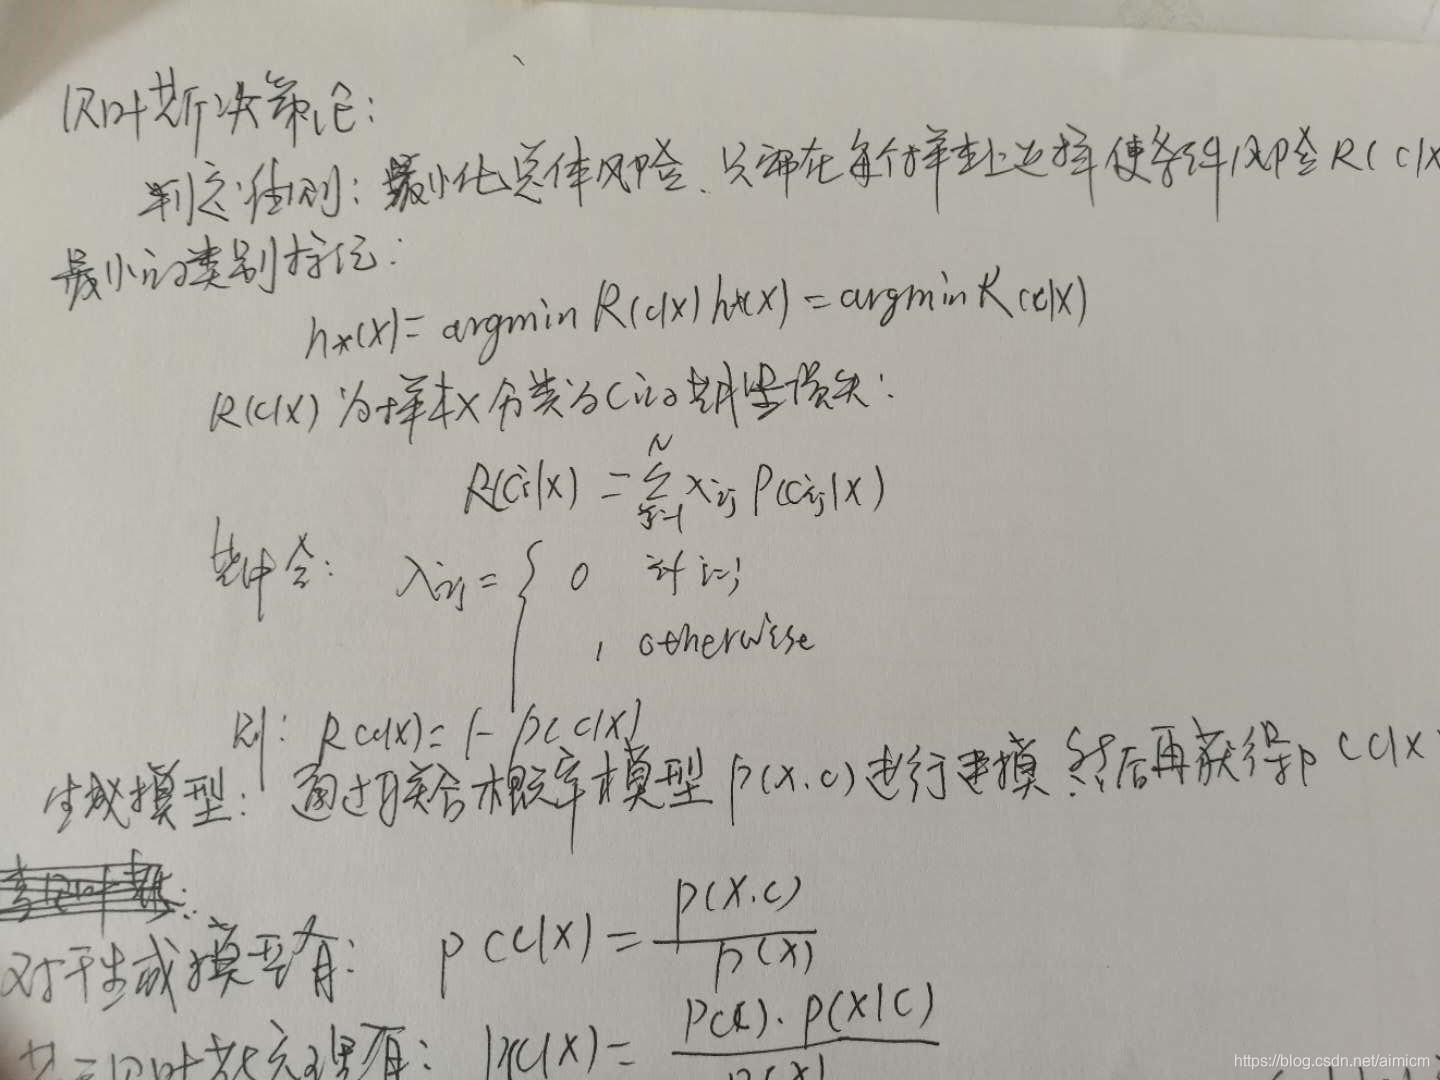 贝叶斯决策论:
判定准则: 最小化总体风险、只需在每个样本上选择使条件风险R(C|X
最小的类别标记:
h*(X)= argmin R(c|X) h*(X) = argmin R(c|X)
R(C|X) 为样本X分类为C的期望损失:
R(Ci|X) = Σ_{j=1}^{N} λij P(Cij|X)
其中令: λij = { 0 if i=j
1, otherwise
则: R(c|X)= 1- P(C|X)
生成模型: 通过联合概率模型 P(X.C)进行建模 然后再获得P(C|X
对于生成模型有: P(C|X) = P(X.C) / P(X)
基于贝叶斯定理有: P(C|X) = P(C).P(X|C) / P(X)
https://blog.csdn.net/aimicm